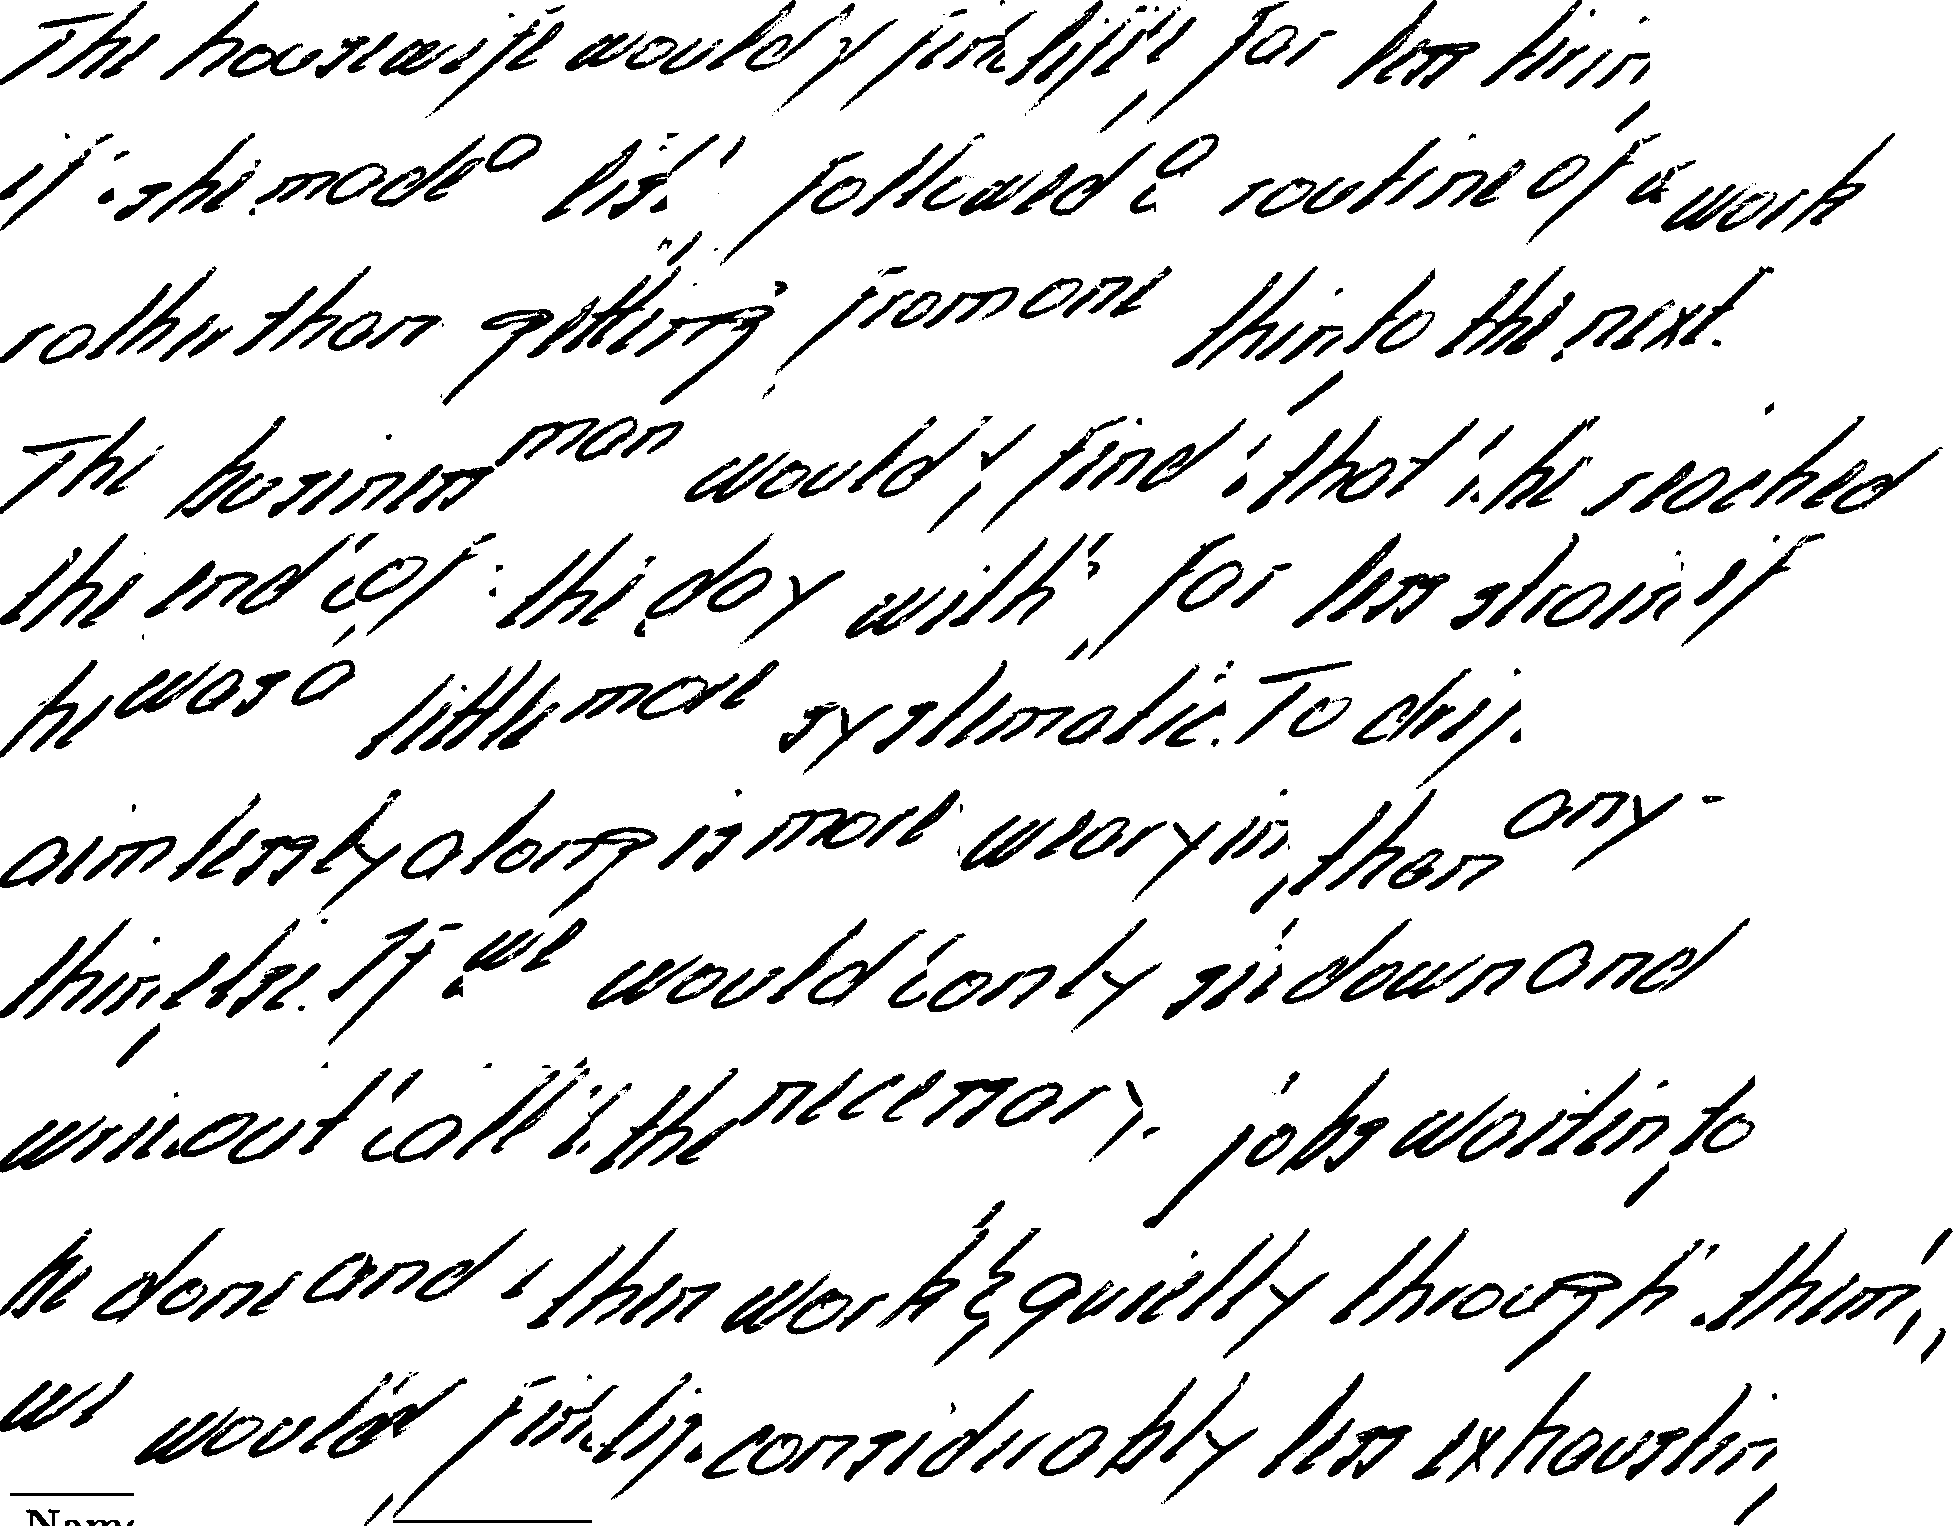 The housewife would find life far less tiring
if she made a list, followed a routine of work
rather than getting from one thing to the next.
The business man would find that he reached
the end of the day with far less strain if
he was a little more systematic. To drift
aimlessly along is more wearying than any-
thing else. If we would only sit down and
write out all the necessary jobs waiting to
be done and then work quietly through them,
we would find life considerably less exhausting
Name